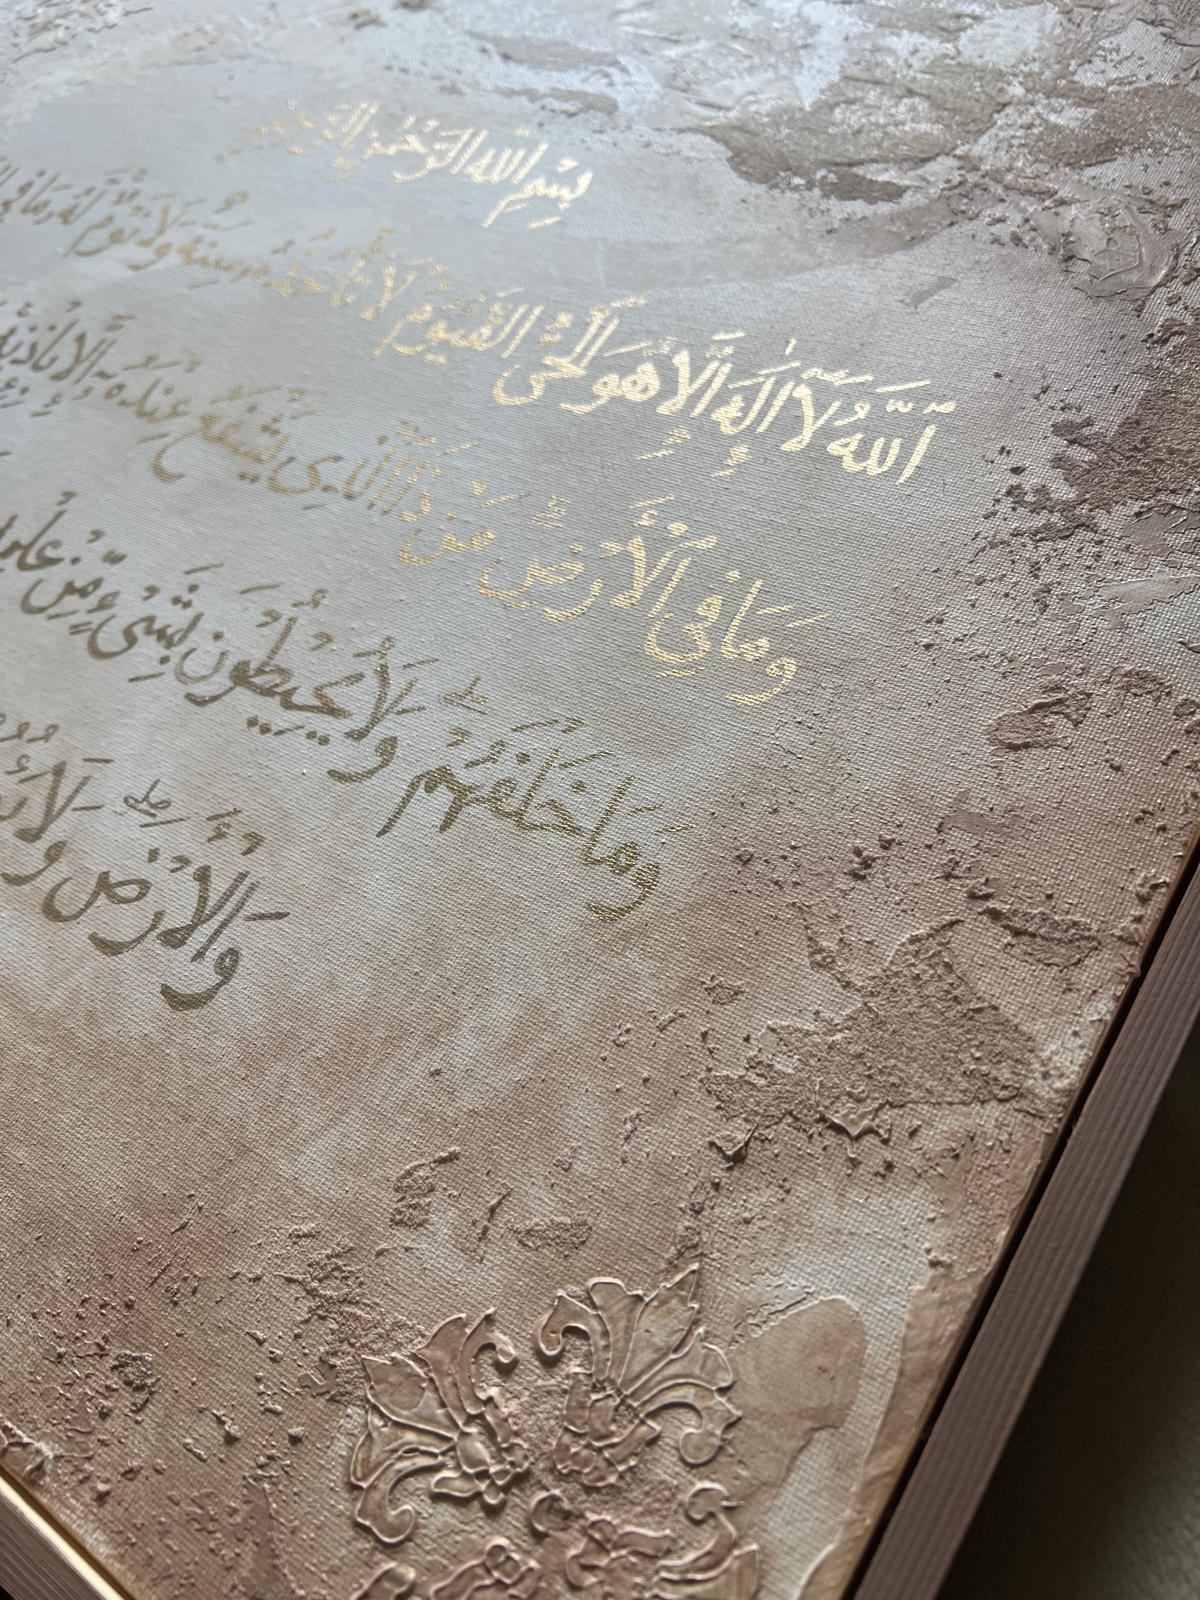 بِسْمِ اللهِ الرَّحْمٰنِ الرَّحِيْمِ
اَللّٰهُ لَآ اِلٰهَ اِلَّا هُوَ الْحَیُّ الْقَيُّوْمُ لَا تَاْخُذُهٗ سِنَةٌ وَّلَا نَوْمٌ لَهٗ مَا فِی
وَمَا فِی الْاَرْضِ مَنْ ذَا الَّذِیْ يَشْفَعُ عِنْدَهٗٓ اِلَّا بِاِذْنِهٖ
وَمَا خَلْفَهُمْ وَلَا يُحِيْطُوْنَ بِشَیْءٍ مِّنْ
وَالْاَرْضَ وَلَا